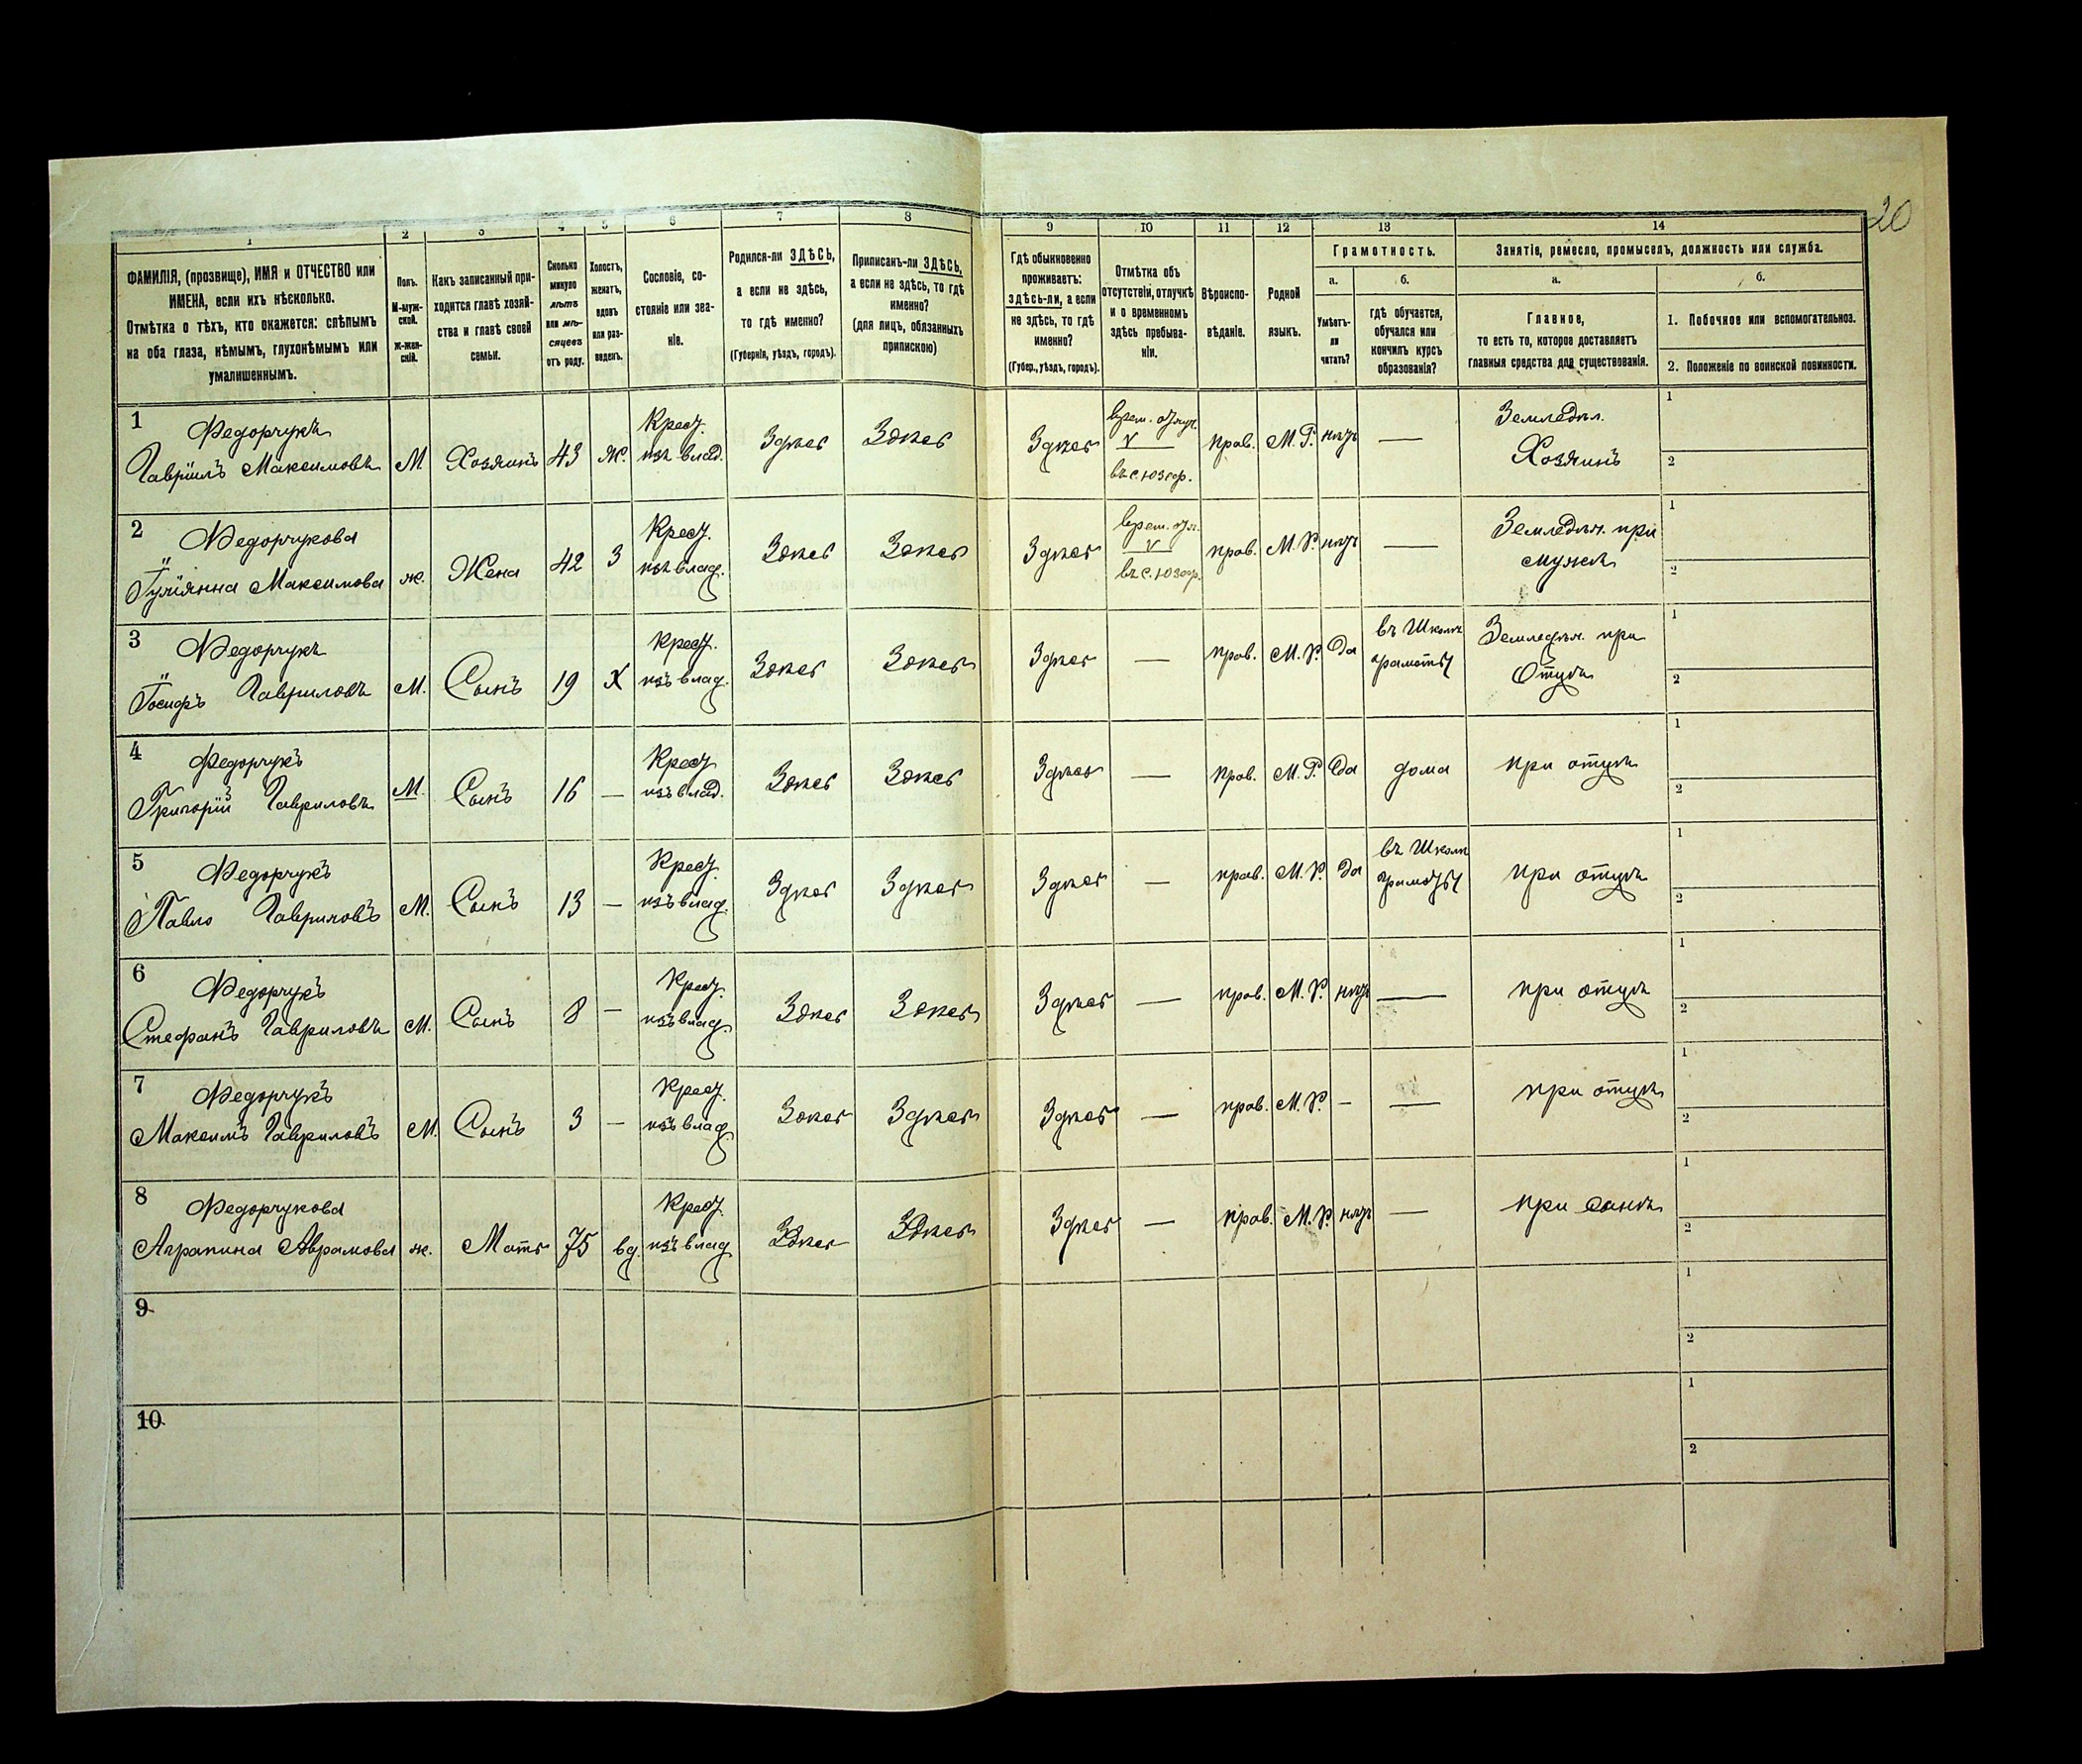 20
1 2 3 4 5 6 7 8 9 10 11 12 13 14
ФАМИЛІЯ, (прозвище), ИМЯ и ОТЧЕСТВО или
ИМЕНА, если ихъ нѣсколько.
Отмѣтка о тѣхъ, кто окажется: слѣпымъ
на оба глаза, нѣмымъ, глухонѣмымъ или
умалишеннымъ.
Полъ.
М-муж-
ской.
Ж-жен-
скій.
Какъ записанный при-
ходится главѣ хозяй-
ства и главѣ своей
семьи.
Сколько
минуло
лѣтъ
или мѣ-
сяцевъ
отъ роду.
Холостъ,
женатъ,
вдовъ
или раз-
веденъ.
Сословіе, со-
стояніе или зва-
ніе.
Родился-ли ЗДѢСЬ,
а если не здѣсь,
то гдѣ именно?
(Губернія, уѣздъ, городъ).
Приписанъ-ли ЗДѢСЬ,
а если не здѣсь, то гдѣ
именно?
(для лицъ, обязанныхъ
припискою)
Гдѣ обыкновенно
проживаетъ:
здѣсь-ли, а если
не здѣсь, то гдѣ
именно?
(Губер., уѣздъ, городъ).
Отмѣтка объ
отсутствіи, отлучкѣ
и о временномъ
здѣсь пребыва-
ніи.
Вѣроиспо-
вѣданіе.
Родной
языкъ.
Грамотность.
а.
Умѣетъ-
ли
читать?
б.
гдѣ обучается,
обучался или
кончилъ курсъ
образованія?
Занятіе, ремесло, промыселъ, должность или служба.
а.
Главное,
то есть то, которое доставляетъ
главныя средства для существованія.
б.
1. Побочное или вспомогательное.
2. Положеніе по воинской повинности.
1 Федорчукъ Крест. врем. отлуч. Земледѣл. 1
Гавріилъ Максимовъ М. Хозяинъ 43 Ж. изъ влад. Здѣсь Здѣсь Здѣсь V прав. М.Р. нѣтъ — Хозяинъ 2
въ с.
2 Федорчукова Крест. врем. Земледѣл. при 1
Максимова ж. Жена 42 З изъ влад. Здѣсь Здѣсь Здѣсь V прав. М.Р. нѣтъ — мужѣ 2
въ с.
3 Федорчукъ Крест. въ Школѣ Земледѣл. при 1
Іосифъ Гавриловъ М. Сынъ 19 Х изъ влад. Здѣсь Здѣсь Здѣсь — прав. М.Р. Да грамоты Отцѣ 2
4 Федорчукъ Крест. 1
Григорій Гавриловъ М. Сынъ 16 — изъ влад. Здѣсь Здѣсь Здѣсь — прав. М.Р. Да дома при отцѣ 2
5 Федорчукъ Крест. въ Школѣ 1
Павло Гавриловъ М. Сынъ 13 — изъ влад. Здѣсь Здѣсь Здѣсь — прав. М.Р. Да грамоты при отцѣ 2
6 Федорчукъ Крест. 1
Стефанъ Гавриловъ М. Сынъ 8 — изъ влад. Здѣсь Здѣсь Здѣсь — прав. М.Р. нѣтъ — при отцѣ 2
7 Федорчукъ Крест. 1
Максимъ Гавриловъ М. Сынъ 3 — изъ влад. Здѣсь Здѣсь Здѣсь — прав. М.Р. — — при отцѣ 2
8 Федорчукова Крест. 1
Аграпина Аврамова ж. Мать 75 вд. изъ влад. Здѣсь Здѣсь Здѣсь — прав. М.Р. нѣтъ — при сынѣ 2
9 1
2
10 1
2